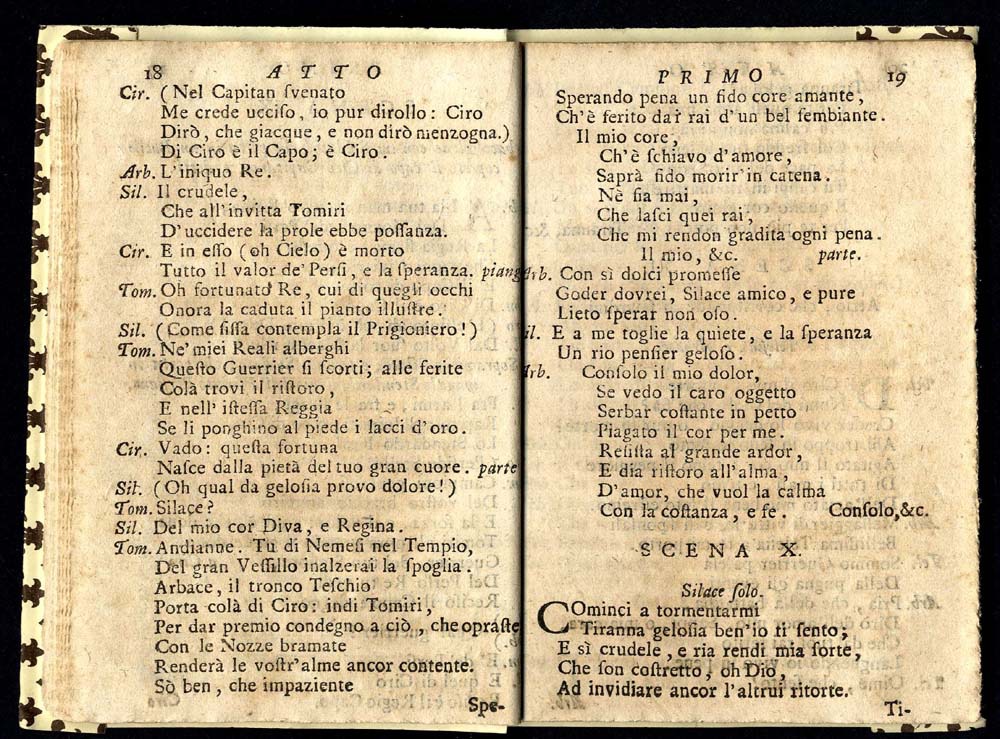 18 ATTO
Cir. (Nel Capitan ſvenato
Me crede ucciſo, io pur dirollo: Ciro
Dirò, che giacque, e non dirò menzogna.)
Di Ciro è il Capo; è Ciro.
Arb. L'iniquo Re.
Sil. Il crudele,
Che all'invitta Tomiri
D'uccidere la prole ebbe poſſanza.
Cir. E in eſſo (oh Cielo) è morto
Tutto il valor de' Perſi, e la ſperanza. piang
Tom. Oh fortunato Re, cui di quegli occhi
Onora la caduta il pianto illuſtre.
Sil. (Come fiſſa contempla il Prigioniero!)
Tom. Ne' miei Reali alberghi
Queſto Guerrier ſi ſcorti; alle ferite
Colà trovi il riſtoro,
E nell' iſteſſa Reggia
Se li ponghino al piede i lacci d'oro.
Cir. Vado: queſta fortuna
Naſce dalla pietà del tuo gran cuore. parte
Sil. (Oh qual da geloſia provo dolore!)
Tom. Silace?
Sil. Del mio cor Diva, e Regina.
Tom. Andianne. Tu di Nemeſi nel Tempio,
Del gran Veſſillo inalzerai la ſpoglia.
Arbace, il tronco Teſchio
Porta colà di Ciro: indi Tomiri,
Per dar premio condegno a ciò, che opraſte
Con le Nozze bramate
Renderà le voſtr'alme ancor contente.
Sò ben, che impaziente
Spe-
PRIMO 19
Sperando pena un fido core amante,
Ch'è ferito dai rai d'un bel ſembiante.
Il mio core,
Ch'è ſchiavo d'amore,
Saprà fido morir' in catena.
Nè fia mai,
Che laſci quei rai,
Che mi rendon gradita ogni pena.
Il mio, &c. parte.
Arb. Con sì dolci promeſſe
Goder dovrei, Silace amico, e pure
Lieto ſperar non oſo.
il. E a me toglie la quiete, e la ſperanza
Un rio penſier geloſo.
Arb. Conſolo il mio dolor,
Se vedo il caro oggetto
Serbar coſtante in petto
Piagato il cor per me.
Reſiſta al grande ardor,
E dia riſtoro all'alma,
D'amor, che vuol la calma
Con la coſtanza, e fe. Conſolo, &c.
SCENA X.
Silace ſolo.
COminci a tormentarmi
Tiranna geloſia ben'io ti ſento;
E sì crudele, e ria rendi mia ſorte,
Che ſon coſtretto, oh Dio,
Ad invidiare ancor l'altrui ritorte.
Ti-